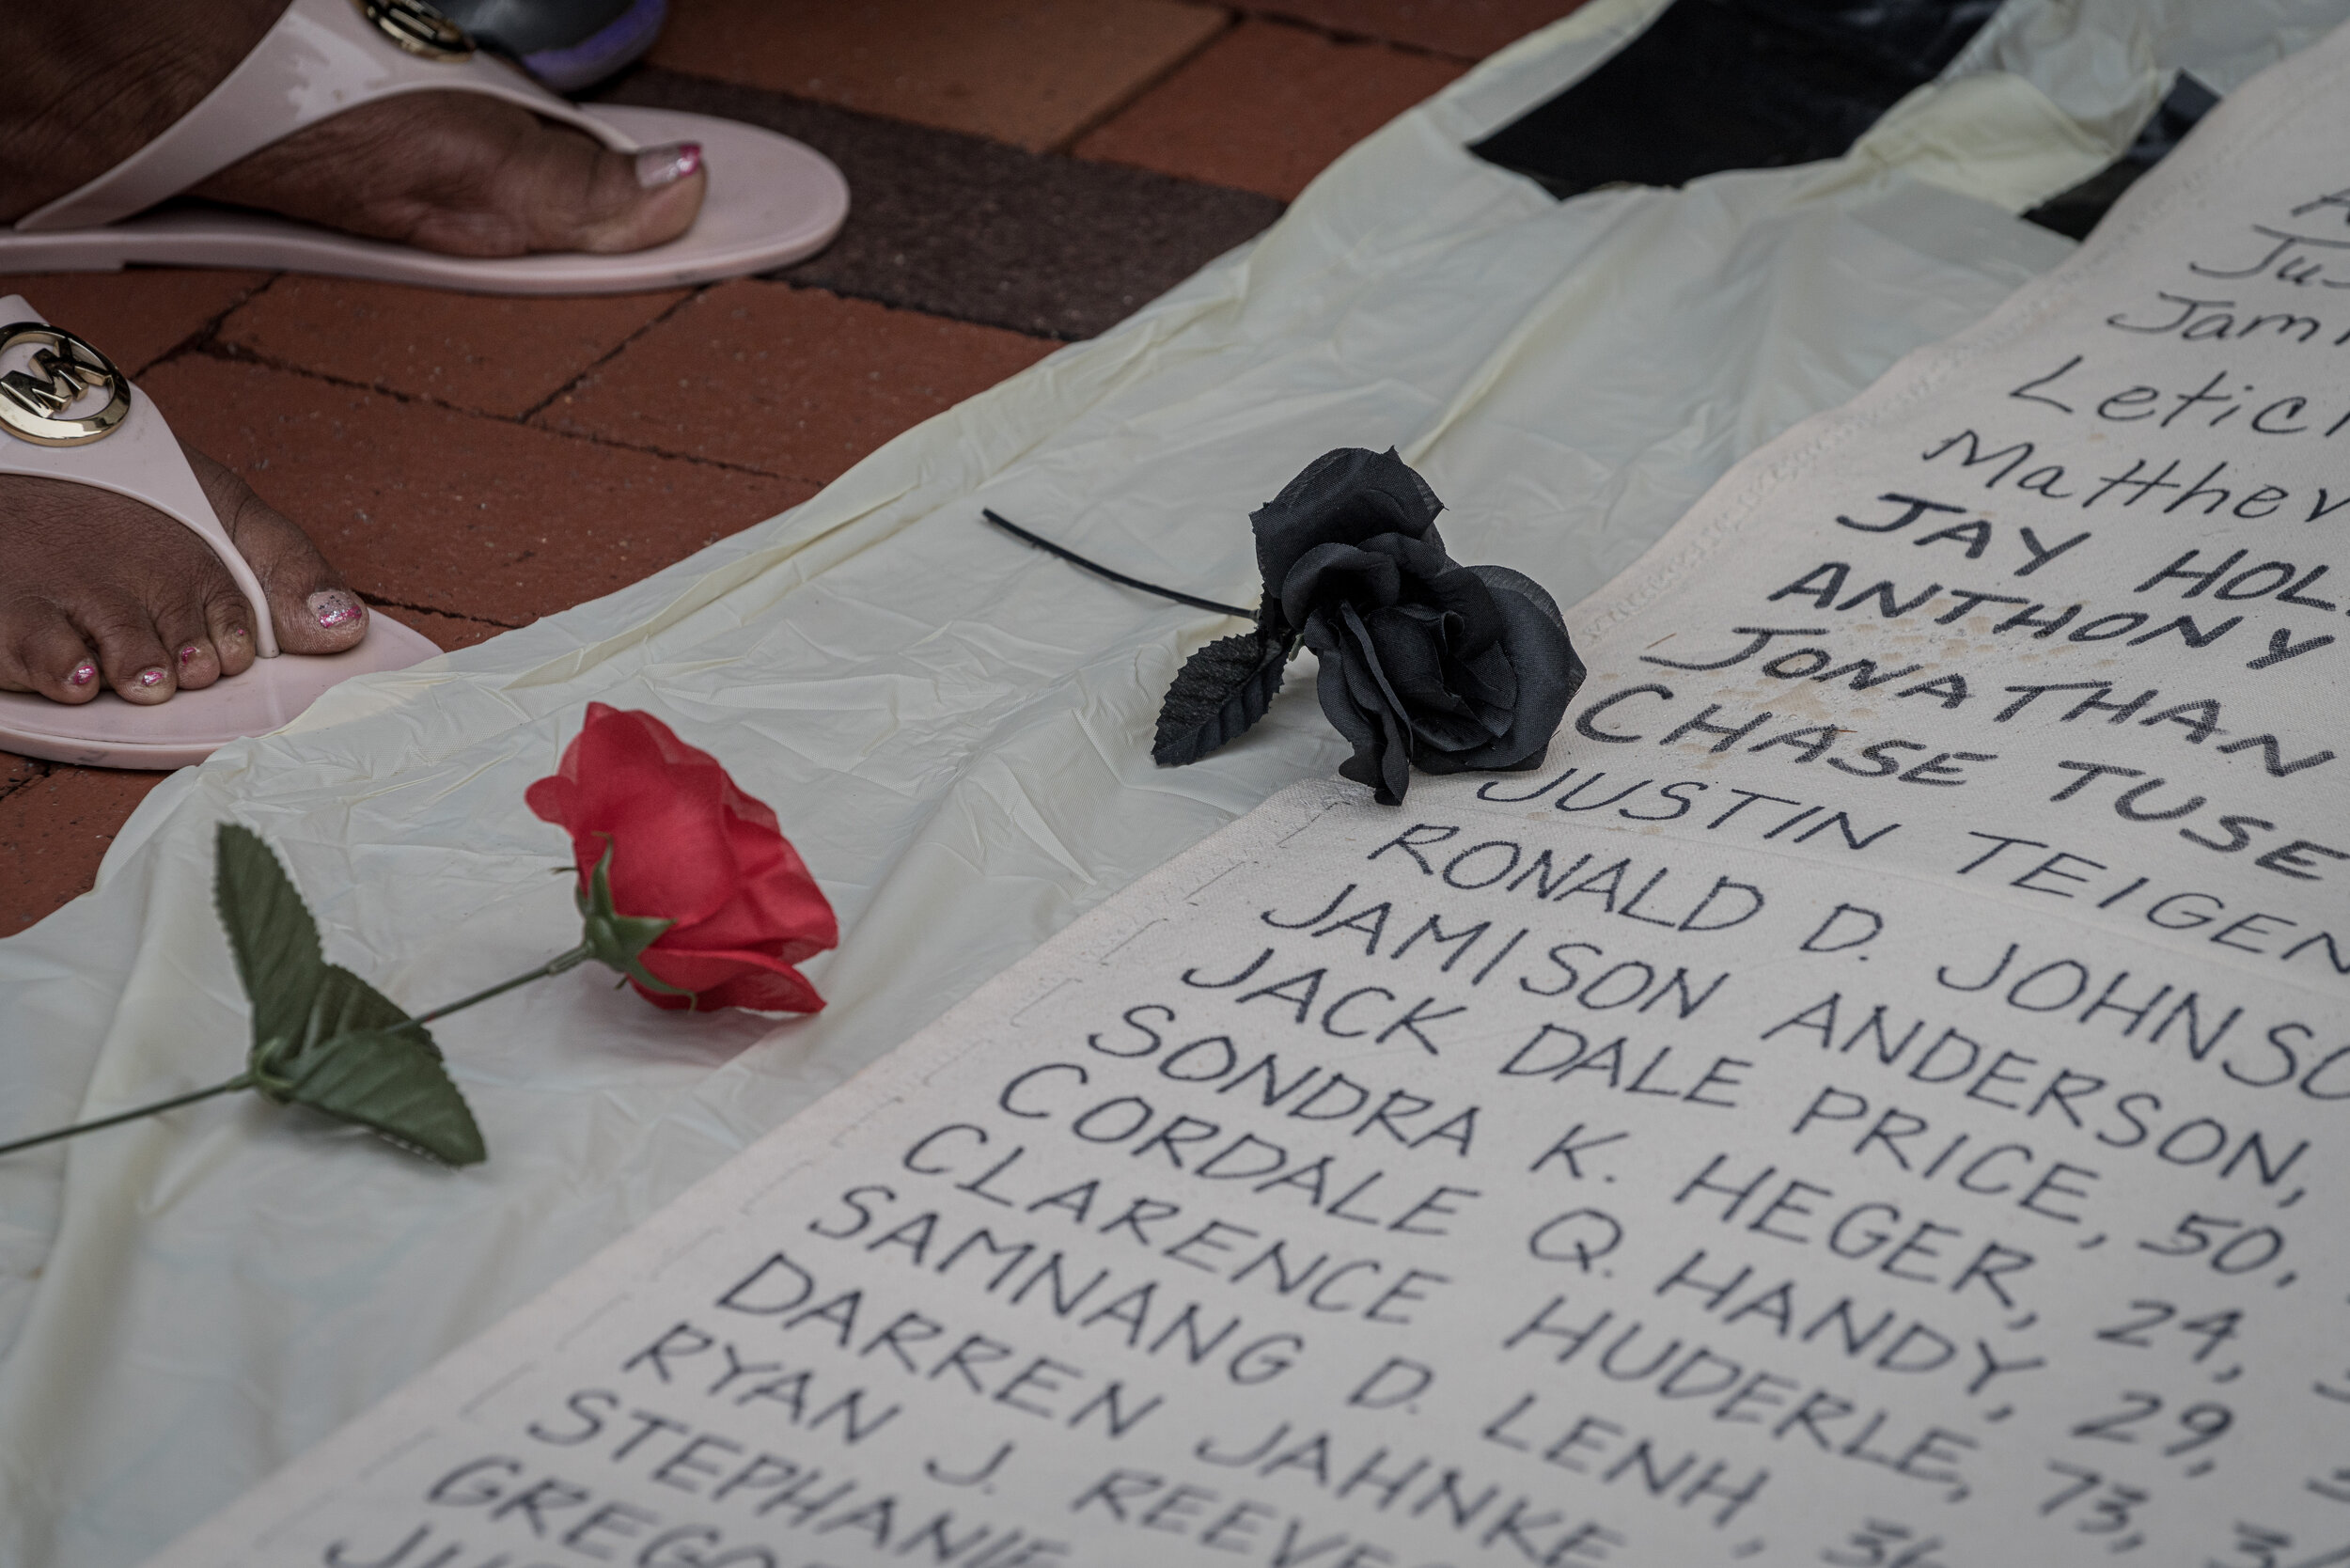 MK
Letic
Matthew
JAY HOL
ANTHONY
JONATHAN
CHASE TUSE
JUSTIN TEIGEN
RONALD D. JOHNSO
JAMISON ANDERSON,
JACK DALE PRICE, 50,
SONDRA K. HEGER, 24,
CORDALE Q. HANDY, 29,
CLARENCE HUDERLE, 73,
SAMNANG D. LENH, 36
DARREN JAHNKE
RYAN J. REEVE
STEPHANIE
GREGO